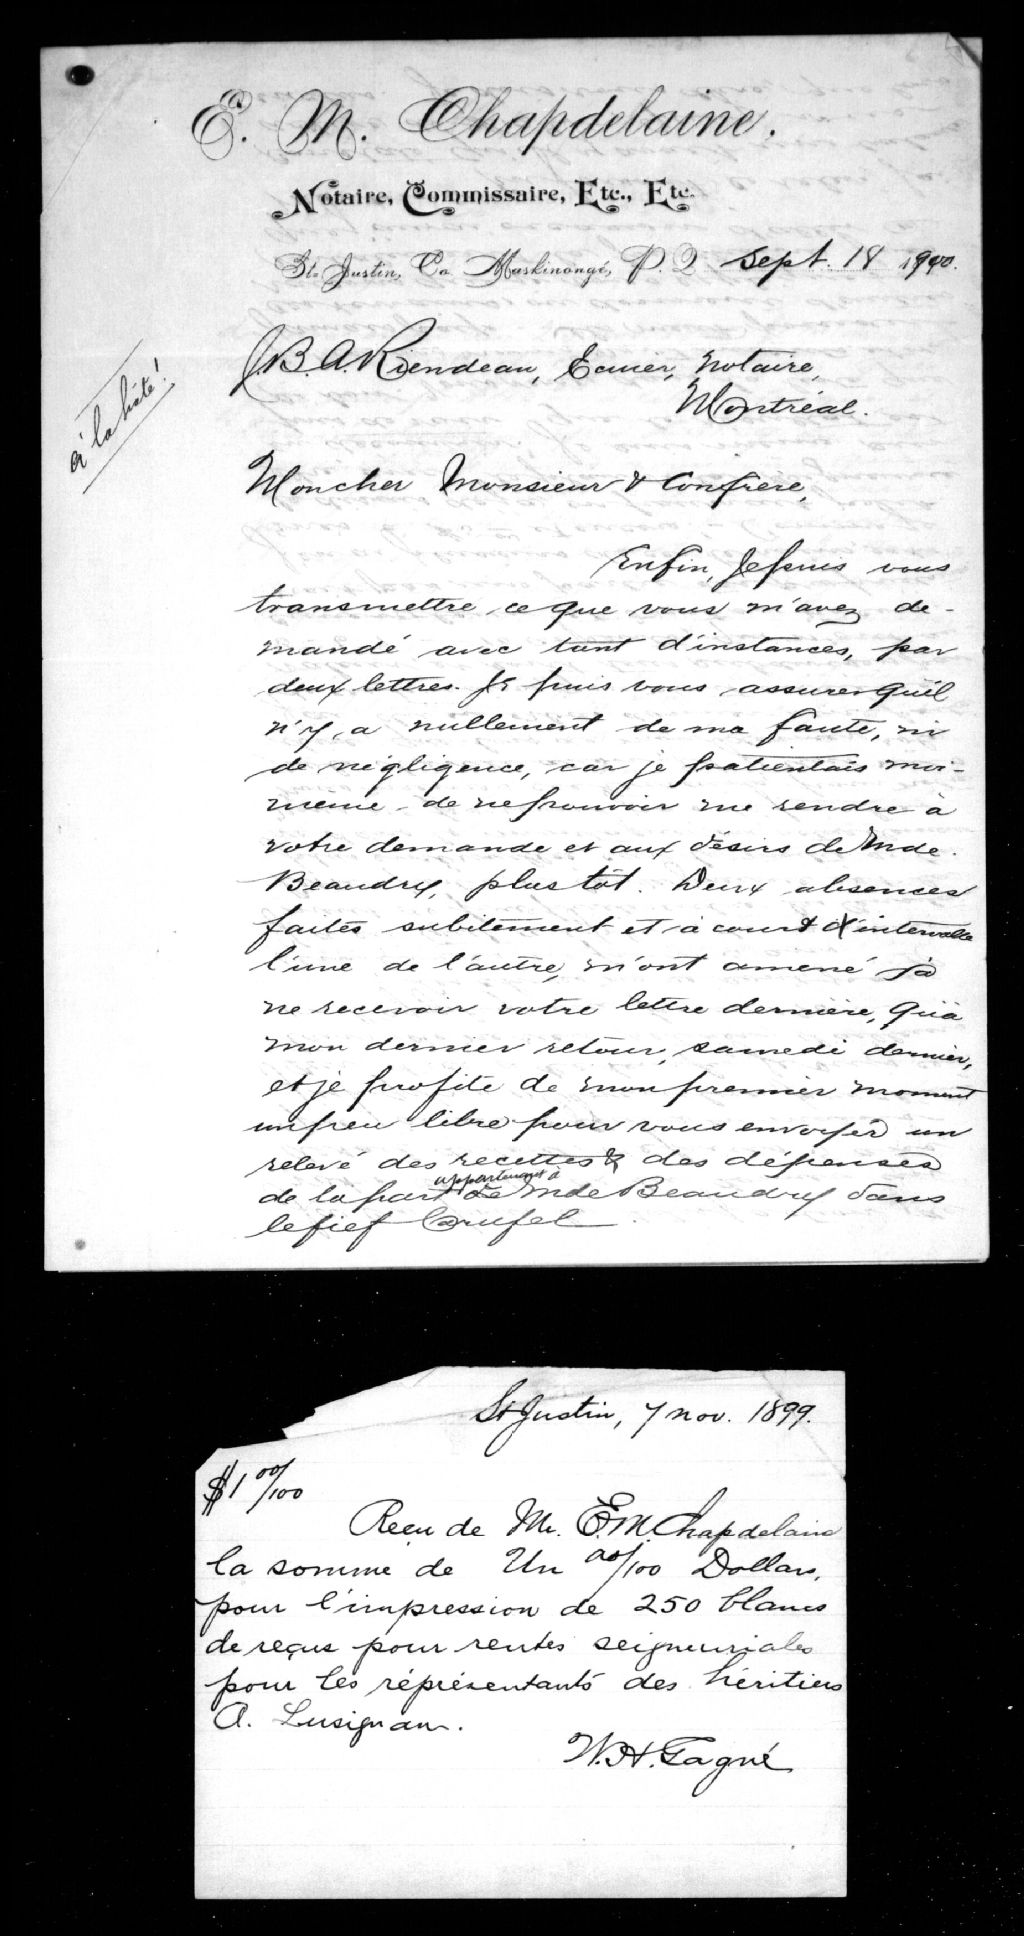 E. M. Chapdelaine.
Notaire, Commissaire, Etc., Etc.
St. Justin, Co. Maskinongé, P. Q. sept. 18 1900.
à la hâte!
J. B. A. Riendeau, Ecuier, Notaire,
Montréal.
Mon cher Monsieur & Confrère,
Enfin, Je puis vous
transmettre ce que vous m'avez de-
mandé avec tant d'instances, par
deux lettres. Je puis vous assurer qu'il
n'y a nullement de ma faute, ni
de négligence, car je patientais moi-
même de ne pouvoir me rendre à
votre demande et aux désirs de Mde.
Beaudry, plus tôt. Deux absences
faites subitement et à court d'intervalle
l'une de l'autre, m'ont amené à
ne recevoir votre lettre dernière, qu'à
mon dernier retour, samedi dernier,
et je profite de mon premier moment
un peu libre pour vous envoyer un
relevé des recettes & des dépenses
appartenant à
de la part de Mde Beaudry dans
le fief Carufel.
St Justin, 7 nov. 1899.
$1 00/100
Reçu de Mr. E. M. Chapdelaine
la somme de Un 00/100 Dollars,
pour l'impression de 250 blancs
de reçus pour rentes seigneuriales
pour les réprésentants des héritiers
A. Lusignan.
W. H. Gagné